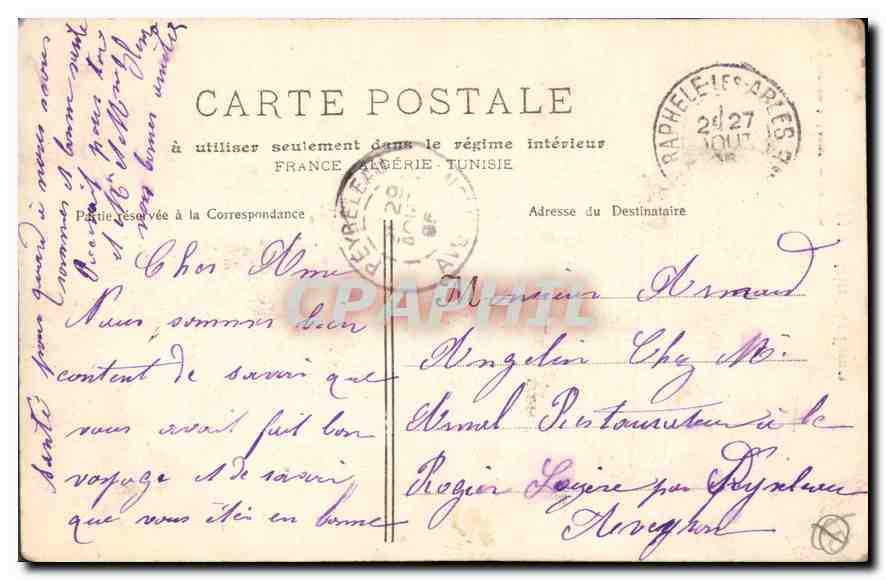 CARTE POSTALE
à utiliser seulement dans le régime intérieur
FRANCE - ALGÉRIE - TUNISIE
Partie réservée à la Correspondance
Adresse du Destinataire
RAPHELE-LES-ARLES
27
AOUT
PEYRELEAU
29
AVEYRON
CPAPHIL
Cher Ami
Nous sommes bien
content de savoir que
vous avait fait bon
voyage et de savoir
que vous êtes en bonne
santé pour quand à nous nous
sommes et bonne santé
Recevait pour toi
et Mr et
nos bonnes amitiés
Monsieur Armand
Angelin Chez Mr
Armel Restaurateur à la
Rogier Lozère par Peyreleau
Aveyron